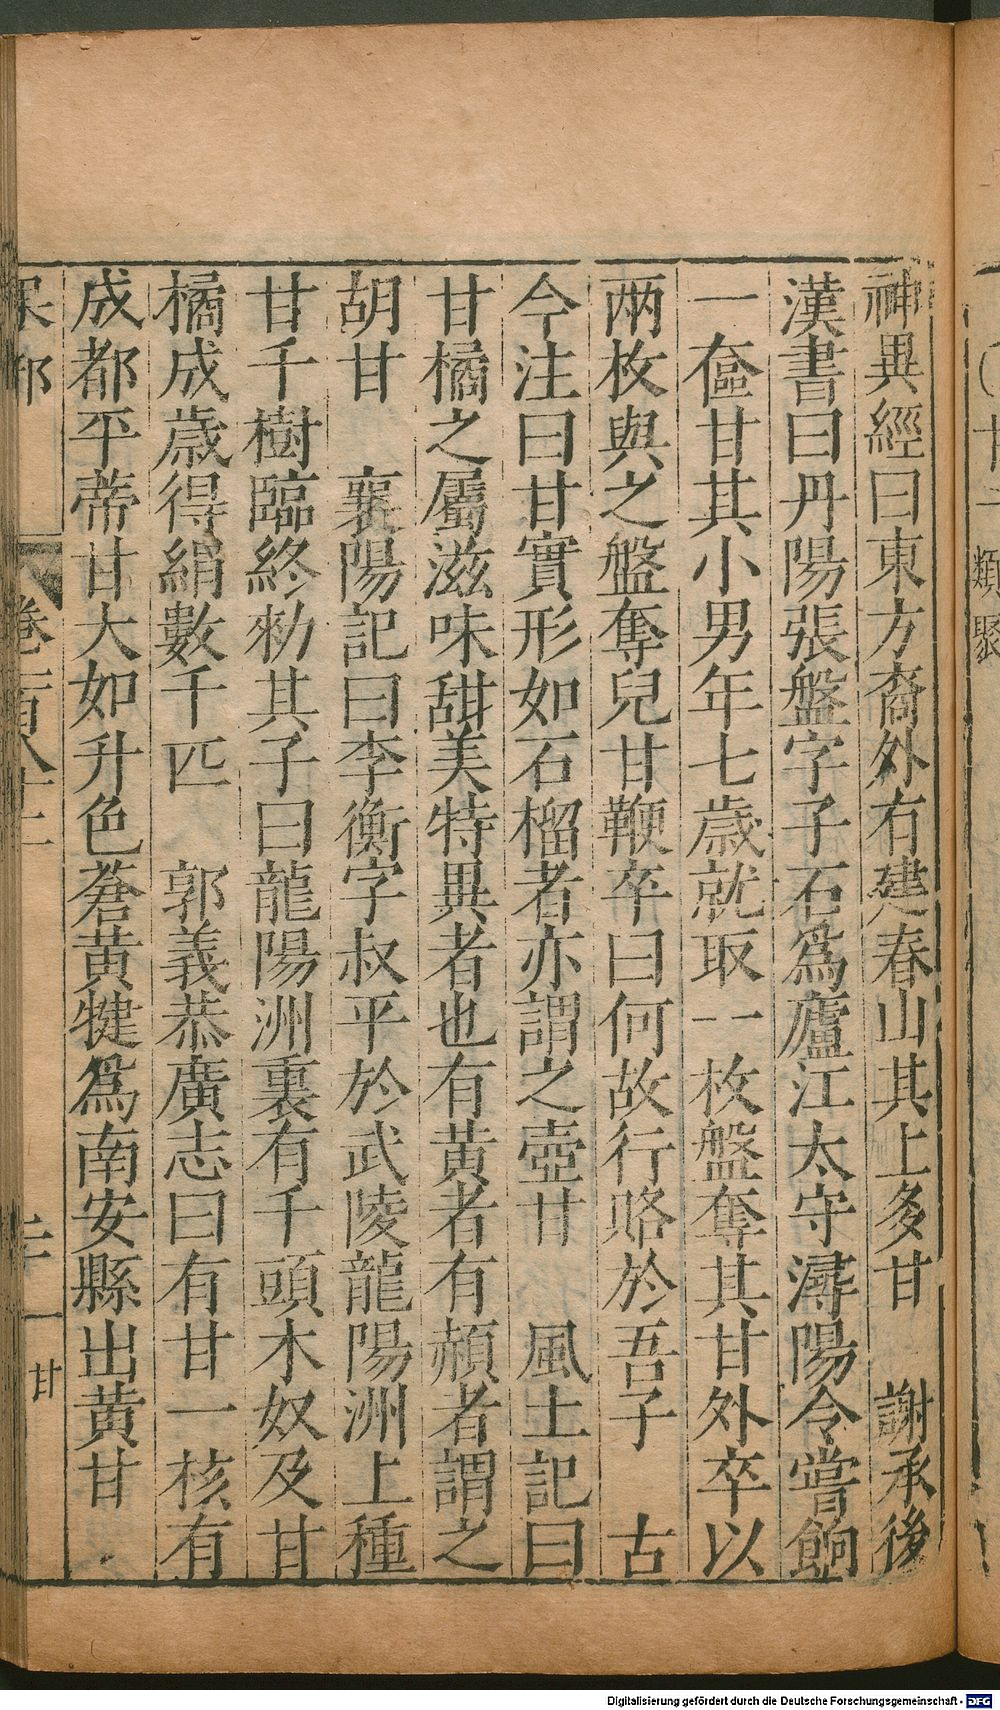 類聚
神異經曰東方裔外有建春山其上多甘　謝承後
漢書曰丹陽張盤字子石爲廬江太守潯陽令嘗餉
一奩甘其小男年七歲就取一枚盤奪其甘外卒以
兩枚與之盤奪兒甘鞭卒曰何故行賂於吾子　古
今注曰甘實形如石榴者亦謂之壺甘　風土記曰
甘橘之屬滋味甜美特異者也有黃者有赬者謂之
胡甘　襄陽記曰李衡字叔平於武陵龍陽洲上種
甘千樹臨終勑其子曰龍陽洲裏有千頭木奴及甘
橘成歲得絹數千匹　郭義恭廣志曰有甘一核有
成都平蒂甘大如升色蒼黃犍爲南安縣出黃甘
果部
甘
Digitalisierung gefördert durch die Deutsche Forschungsgemeinschaft - DFG